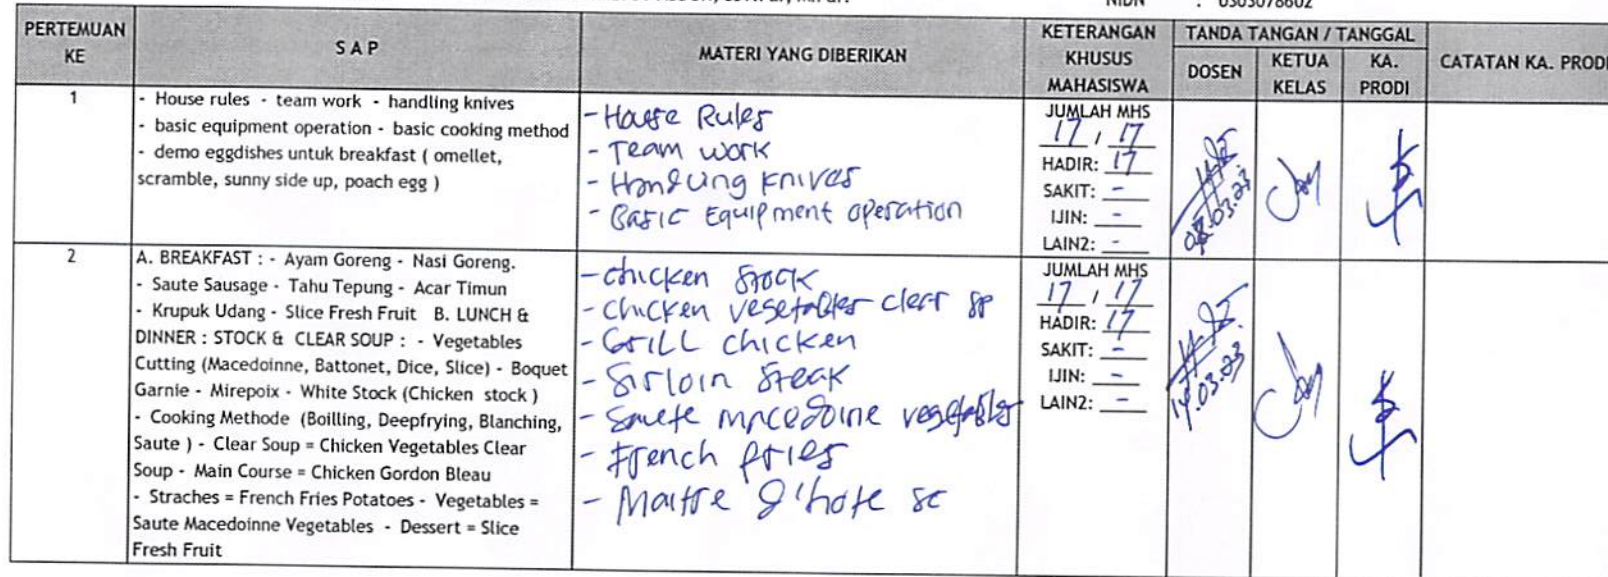 NIDN : 0303078602
PERTEMUAN KE
S A P
MATERI YANG DIBERIKAN
KETERANGAN KHUSUS MAHASISWA
TANDA TANGAN / TANGGAL
DOSEN
KETUA KELAS
KA. PRODI
CATATAN KA. PRODI
1
- House rules - team work - handling knives
- basic equipment operation - basic cooking method
- demo eggdishes untuk breakfast ( omellet,
scramble, sunny side up, poach egg )
- House Rules
- Team work
- Handling knives
- Basic Equipment operation
JUMLAH MHS
17 / 17
HADIR: 17
SAKIT: -
IJIN: -
LAIN2: -
08.03.23
2
A. BREAKFAST : - Ayam Goreng - Nasi Goreng.
- Saute Sausage - Tahu Tepung - Acar Timun
- Krupuk Udang - Slice Fresh Fruit B. LUNCH &
DINNER : STOCK & CLEAR SOUP : - Vegetables
Cutting (Macedoinne, Battonet, Dice, Slice) - Boquet
Garnie - Mirepoix - White Stock (Chicken stock )
- Cooking Methode (Boilling, Deepfrying, Blanching,
Saute ) - Clear Soup = Chicken Vegetables Clear
Soup - Main Course = Chicken Gordon Bleau
- Straches = French Fries Potatoes - Vegetables =
Saute Macedoinne Vegetables - Dessert = Slice
Fresh Fruit
- chicken stock
- chicken vegetables clear sp
- Grill chicken
- Sirloin steak
- Saute macedoine vegetables
- French fries
- Maitre d'hote sc
JUMLAH MHS
17 / 17
HADIR: 17
SAKIT: -
IJIN: -
LAIN2: -
14.03.23